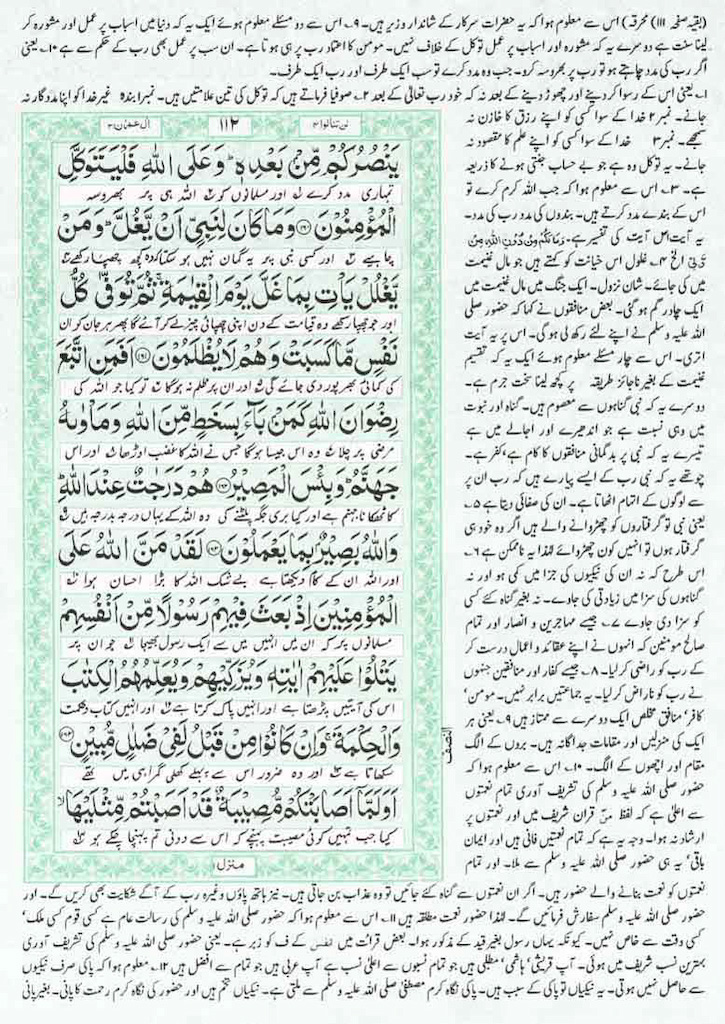 (بقیہ صفحہ ۱۱۱) محرقہ) اس سے معلوم ہوا کہ یہ حضرات سرکار کے شاندار وزیر ہیں۔ ۹؎ اس سے دو مسئلے معلوم ہوئے ایک یہ کہ دنیا میں اسباب پر عمل اور مشورہ کر
لینا سنت ہے دوسرے یہ کہ مشورہ اور اسباب پر عمل توکل کے خلاف نہیں۔ مومن کا اعتماد رب پر ہی ہوتا ہے۔ ان سب پر عمل بھی رب کے حکم سے ہے ۱۰؎ یعنی
اگر رب کی مدد چاہتے ہو تو رب پر بھروسہ کرو۔ جب وہ مدد کرے تو سب ایک طرف اور رب ایک طرف۔
۱؎ یعنی اس کے رسوا کر دینے اور چھوڑ دینے کے بعد نہ کہ خود رب تعالیٰ کے بعد ۲؎ صوفیا فرماتے ہیں کہ توکل کی تین علامتیں ہیں۔ نمبر۱ بندہ غیر خدا کو اپنا مددگار نہ
جانے۔ نمبر ۲ خدا کے سوا کسی کو اپنے رزق کا خازن نہ
سمجھے۔ نمبر۳ خدا کے سوا کسی کو اپنے علم کا مقصود نہ
جانے۔ یہ توکل وہ ہے جو بے حساب جنتی ہونے کا ذریعہ
ہے۔ ۳؎ اس سے معلوم ہوا کہ جب اللہ کرم کرے تو
اس کے بندے مدد کرتے ہیں۔ بندوں کی مدد رب کی مدد۔
یہ آیت اس آیت کی تفسیر ہے۔ وَمَا لَكُمْ مِّنْ دُوْنِ اللهِ مِنْ
وَّلِيٍّ الخ ۴؎ غلول اس خیانت کو کہتے ہیں جو مال غنیمت
میں کی جائے۔ شان نزول۔ ایک جنگ میں مال غنیمت میں
ایک چادر گم ہو گئی۔ بعض منافقوں نے کہا کہ حضور صلی
اللہ علیہ وسلم نے اپنے لئے رکھ لی ہو گی۔ اس پر یہ آیت
اتری۔ اس سے چار مسئلے معلوم ہوئے ایک یہ کہ تقسیم
غنیمت کے بغیر ناجائز طریقہ پر کچھ لینا سخت جرم ہے۔
دوسرے یہ کہ نبی گناہوں سے معصوم ہیں۔ گناہ اور نبوت
میں وہی نسبت ہے جو اندھیرے اور اجالے میں ہے
تیسرے یہ کہ نبی پر بدگمانی منافقوں کا کام ہے، کفر ہے۔
چوتھے یہ کہ نبی رب کے ایسے پیارے ہیں کہ رب ان پر
سے لوگوں کے اتہام اٹھاتا ہے۔ ان کی صفائی دیتا ہے ۵؎
یعنی نبی تو گرفتاروں کو چھڑوانے والے ہیں اگر وہ خود ہی
گرفتار ہوں تو انہیں کون چھڑوائے لہٰذا یہ ناممکن ہے ۶؎
اس طرح کہ نہ ان کی نیکیوں کی جزا میں کمی ہو اور نہ
گناہوں کی سزا میں زیادتی کی جاوے۔ نہ بغیر گناہ کئے کسی
کو سزا دی جاوے ۷؎ جیسے مہاجرین و انصار اور تمام
صالح مومنین کہ انہوں نے اپنے عقائد و اعمال درست کر
کے رب کو راضی کر لیا۔ ۸؎ جیسے کفار اور منافقین جنہوں
نے رب کو ناراض کر لیا۔ یہ جماعتیں برابر نہیں۔ مومن'
کافر' منافق مخلص ایک دوسرے سے ممتاز ہیں ۹؎ یعنی ہر
ایک کی منزلیں اور مقامات جداگانہ ہیں۔ بروں کے الگ
مقام اور اچھوں کے الگ۔ ۱۰؎ اس سے معلوم ہوا کہ
حضور صلی اللہ علیہ وسلم کی تشریف آوری تمام نعمتوں
سے اعلیٰ ہے کہ لفظ منّ قرآن شریف میں اور نعمتوں پر
ارشاد نہ ہوا۔ وجہ یہ ہے کہ تمام نعمتیں فانی ہیں اور ایمان
باقی' یہ ہی حضور صلی اللہ علیہ وسلم سے ملا۔ اور تمام
لن تنالوا ۴
۱۱۲
ال عمران ۳
يَنْصُرُكُمْ مِّنْۢ بَعْدِهٖ ؕ وَعَلَى اللّٰهِ فَلْيَتَوَكَّلِ
تمہاری مدد کرے اور مسلمانوں کو اللہ ہی پر بھروسہ
الْمُؤْمِنُوْنَ ۝۱۶۰ وَمَا كَانَ لِنَبِيٍّ اَنْ يَّغُلَّ ؕ وَمَنْ
چاہیے اور کسی نبی پر یہ گمان نہیں ہو سکتا کہ وہ کچھ چھپا رکھے
يَّغْلُلْ يَاْتِ بِمَا غَلَّ يَوْمَ الْقِيٰمَةِ ۚ ثُمَّ تُوَفّٰى كُلُّ
اور جو چھپا رکھے وہ قیامت کے دن اپنی چھپائی چیز لے کر آئے گا پھر ہر جان کو ان
نَفْسٍ مَّا كَسَبَتْ وَهُمْ لَا يُظْلَمُوْنَ ۝۱۶۱ اَفَمَنِ اتَّبَعَ
کی کمائی بھرپور دی جائے گی اور ان پر ظلم نہ ہوگا تو کیا جو اللہ کی
رِضْوَانَ اللّٰهِ كَمَنْۢ بَآءَ بِسَخَطٍ مِّنَ اللّٰهِ وَمَاْوٰىهُ
مرضی پر چلا وہ اس جیسا ہوگا جس نے اللہ کا غضب اوڑھا اور اس
جَهَنَّمُ ؕ وَبِئْسَ الْمَصِيْرُ ۝۱۶۲ هُمْ دَرَجٰتٌ عِنْدَ اللّٰهِ ؕ
کا ٹھکانا جہنم ہے اور کیا بری جگہ پلٹنے کی وہ اللہ کے یہاں درجہ بدرجہ ہیں
وَاللّٰهُ بَصِيْرٌۢ بِمَا يَعْمَلُوْنَ ۝۱۶۳ لَقَدْ مَنَّ اللّٰهُ عَلَى
اور اللہ ان کے کام دیکھتا ہے بے شک اللہ کا بڑا احسان ہوا
الْمُؤْمِنِيْنَ اِذْ بَعَثَ فِيْهِمْ رَسُوْلًا مِّنْ اَنْفُسِهِمْ
مسلمانوں پر کہ ان میں انہیں میں سے ایک رسول بھیجا جو ان پر
يَتْلُوْا عَلَيْهِمْ اٰيٰتِهٖ وَيُزَكِّيْهِمْ وَيُعَلِّمُهُمُ الْكِتٰبَ
اس کی آیتیں پڑھتا ہے اور انہیں پاک کرتا ہے اور انہیں کتاب و حکمت
وَالْحِكْمَةَ ۚ وَاِنْ كَانُوْا مِنْ قَبْلُ لَفِيْ ضَلٰلٍ مُّبِيْنٍ ۝۱۶۴
سکھاتا ہے اور وہ ضرور اس سے پہلے کھلی گمراہی میں تھے
اَوَلَمَّاۤ اَصَابَتْكُمْ مُّصِيْبَةٌ قَدْ اَصَبْتُمْ مِّثْلَيْهَا ۙ
کیا جب تمہیں کوئی مصیبت پہنچے کہ اس سے دونی تم پہنچا چکے ہو
منزل ۱
النصف
نعمتوں کو نعمت بنانے والے حضور ہیں۔ اگر ان نعمتوں سے گناہ کئے جائیں تو وہ عذاب بن جاتی ہیں۔ نیز ہاتھ پاؤں وغیرہ رب کے آگے شکایت بھی کریں گے۔ اور
حضور صلی اللہ علیہ وسلم سفارش فرمائیں گے۔ لہٰذا حضور نعمت مطلقہ ہیں ۱۱؎ اس سے معلوم ہوا کہ حضور صلی اللہ علیہ وسلم کی رسالت عام ہے کسی قوم کسی ملک'
کسی وقت سے خاص نہیں۔ کیونکہ یہاں رسول بغیر قید کے مذکور ہوا۔ بعض قراٰت میں نفس کے ف کو زبر ہے۔ یعنی حضور صلی اللہ علیہ وسلم کی تشریف آوری
بہترین نسب شریف میں ہوئی۔ آپ قریشی' ہاشمی' مطلبی ہیں جو تمام نسبوں سے اعلیٰ نسب ہے آپ عربی ہیں جو تمام سے افضل ہیں ۱۲؎ معلوم ہوا کہ پاکی صرف نیکیوں
سے حاصل نہیں ہوتی۔ یہ نیکیاں تو پاکی کے سبب ہیں۔ پاکی نگاہ کرم مصطفیٰ صلی اللہ علیہ وسلم سے ملتی ہے۔ نیکیاں تخم ہیں اور حضور کی نگاہ کرم رحمت کا پانی۔ بغیر پانی